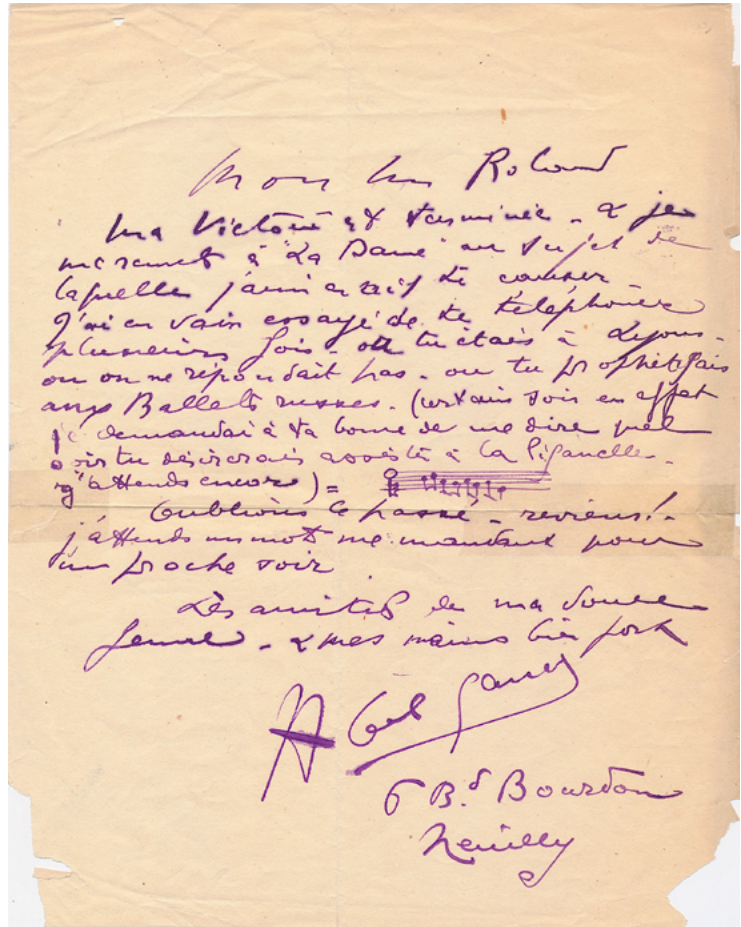 Mon cher Roland
Ma Victoire est terminée - & je
me remets à "La Dame" au sujet de
laquelle j'aimerais te causer
J'ai en vain essayé de te téléphoner
plusieurs fois - ou tu étais à Lyons -
ou on ne répondait pas - ou tu prophétisais
aux Ballets russes. (certain soir en effet
je demandai à ta bonne de me dire quel
soir tu désirerais assister à la
j'attends encore) =
Oublions le passé - reviens! -
j'attends un mot me mandant pour
un proche soir
Les amitiés de ma douce
femme - & mes mains bien fort
Abel Gance
6 B.d Bourdon
Neuilly